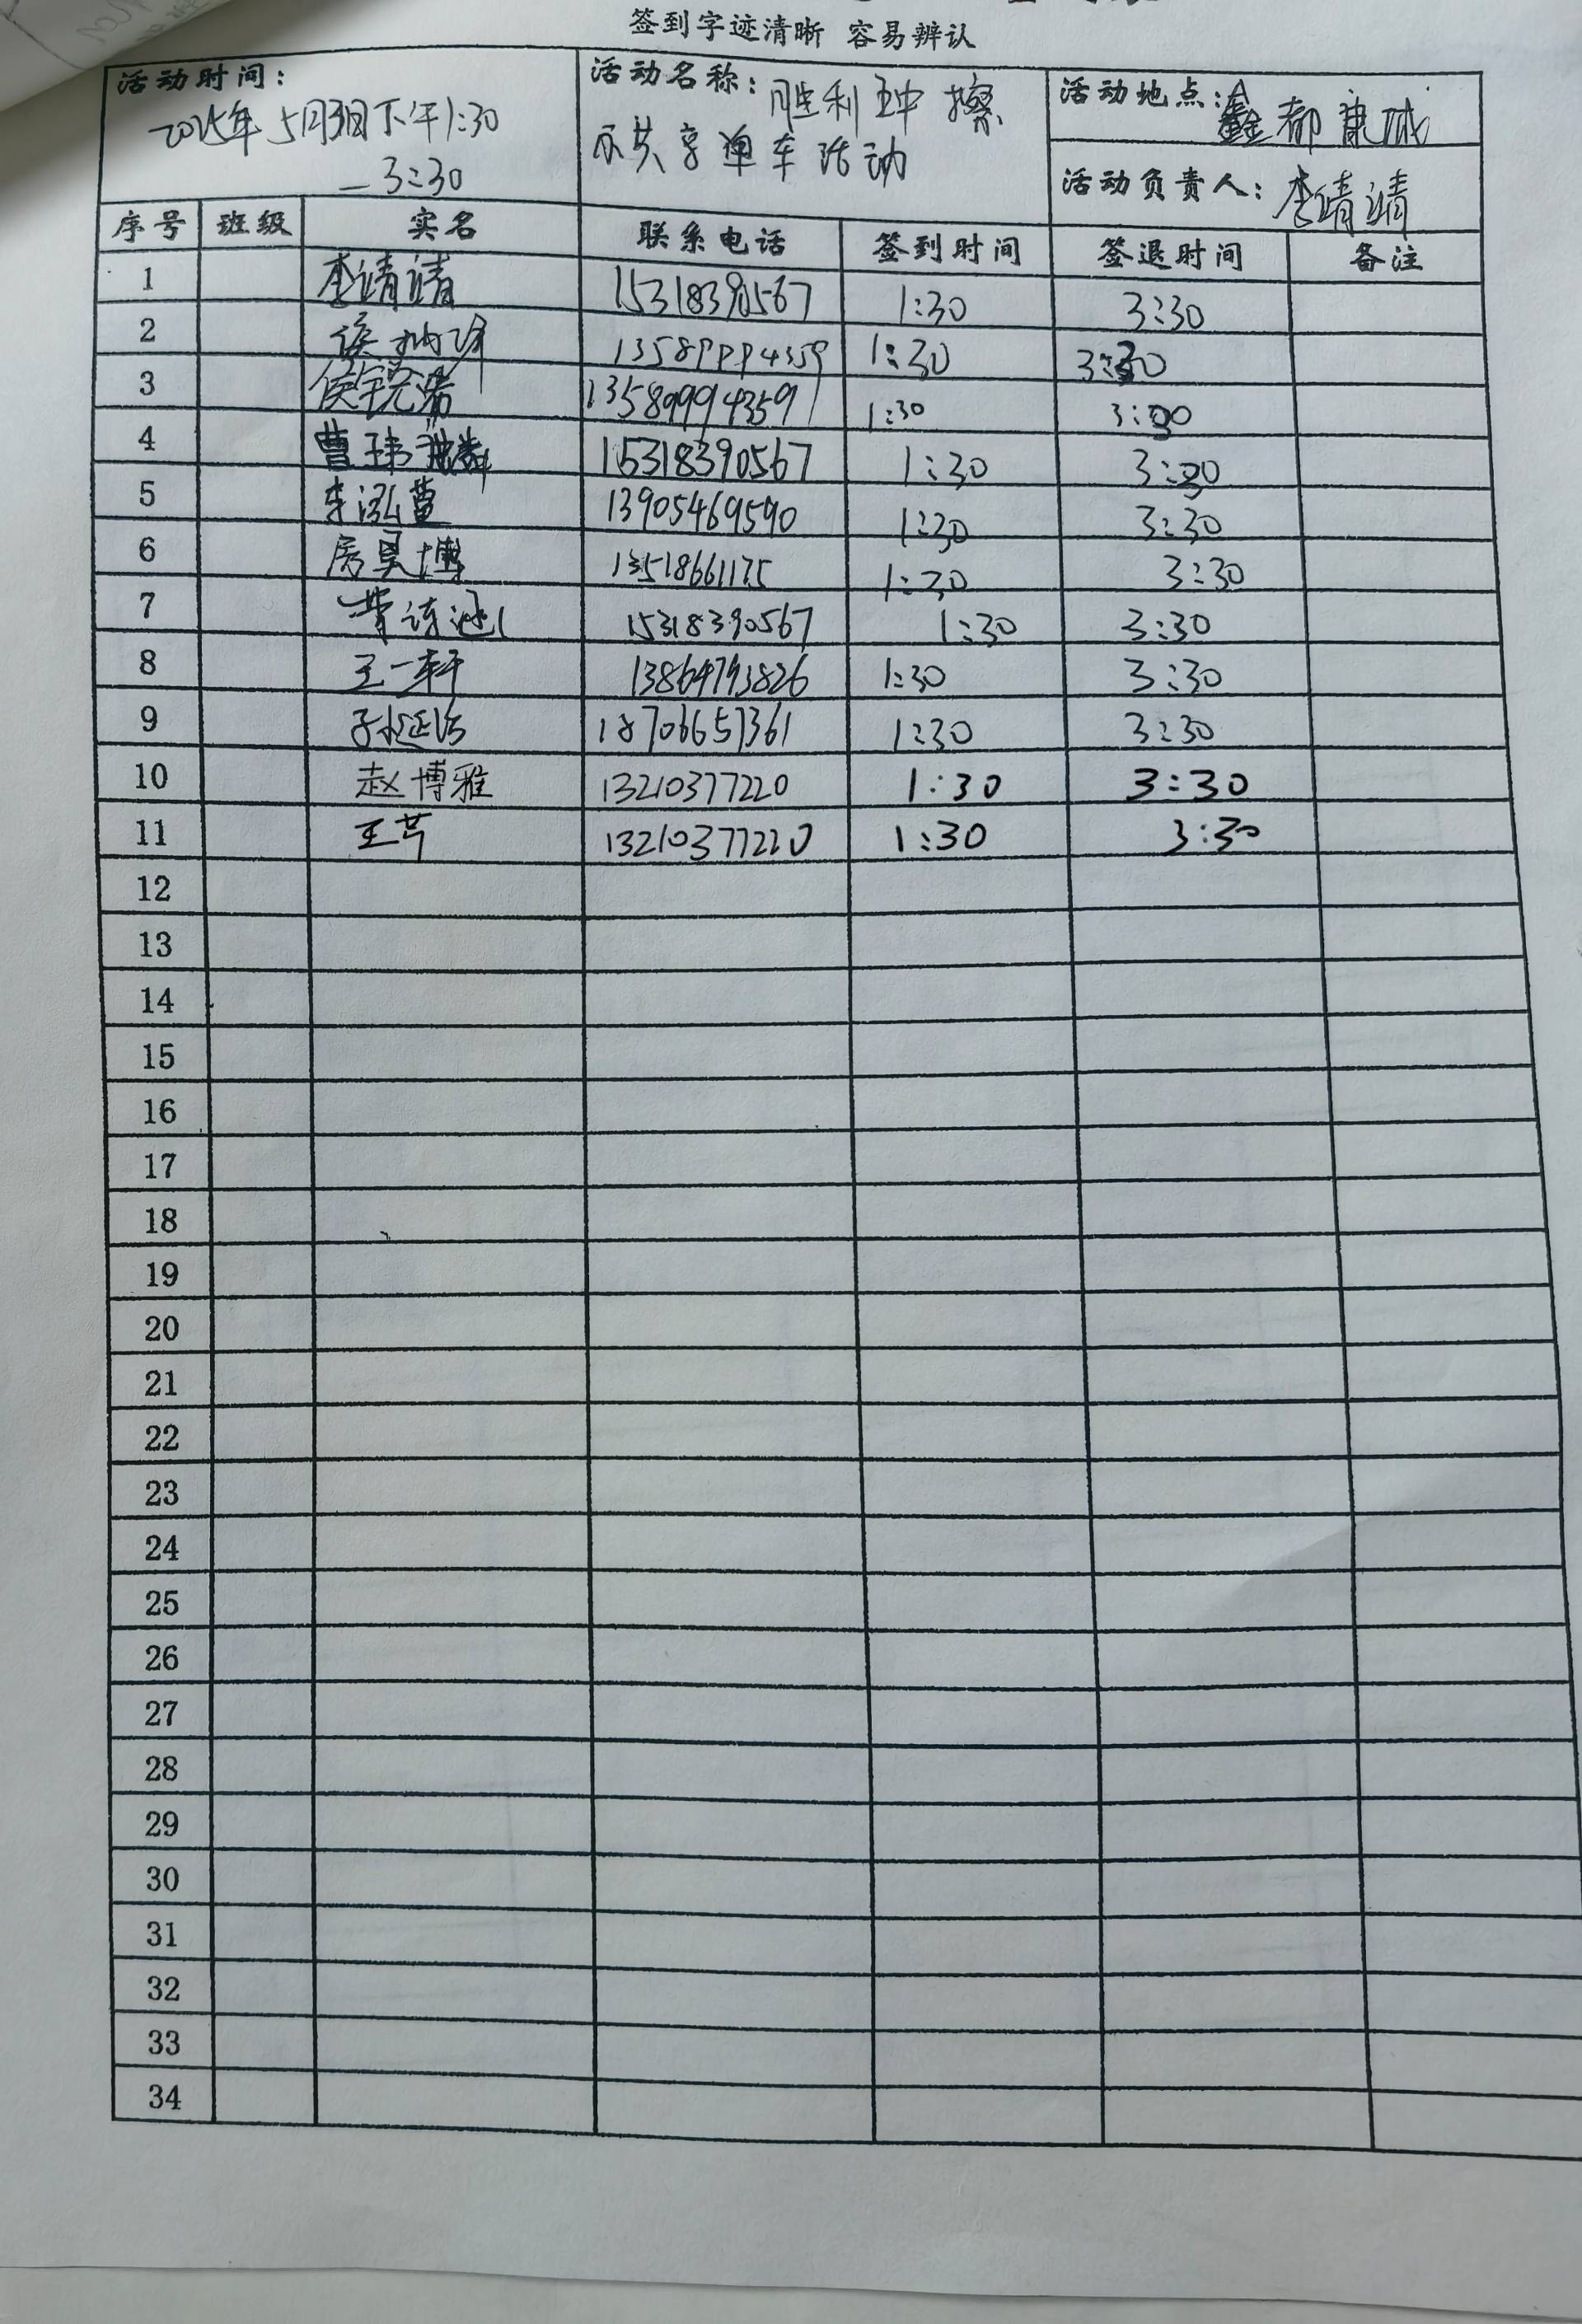 签到字迹清晰 容易辨认
活动时间：
2025年 5月3日下午1:30
—3:30
活动名称：胜利五中 擦
共享单车活动
活动地点：鑫都康城
活动负责人：李靖靖
序号 班级 实名 联系电话 签到时间 签退时间 备注
1 李靖靖 15318390567 1:30 3:30
2 侯 1:30 3:30
3 侯 13589994359 1:30 3:30
4 曹玮 15318390567 1:30 3:30
5 李泓萱 13905469590 1:30 3:30
6 房昊博 1:30 3:30
7 15318390567 1:30 3:30
8 王一轩 13864793826 1:30 3:30
9 18706657361 1:30 3:30
10 赵博雅 13210377220 1:30 3:30
11 王芹 13210377220 1:30 3:30
12
13
14
15
16
17
18
19
20
21
22
23
24
25
26
27
28
29
30
31
32
33
34